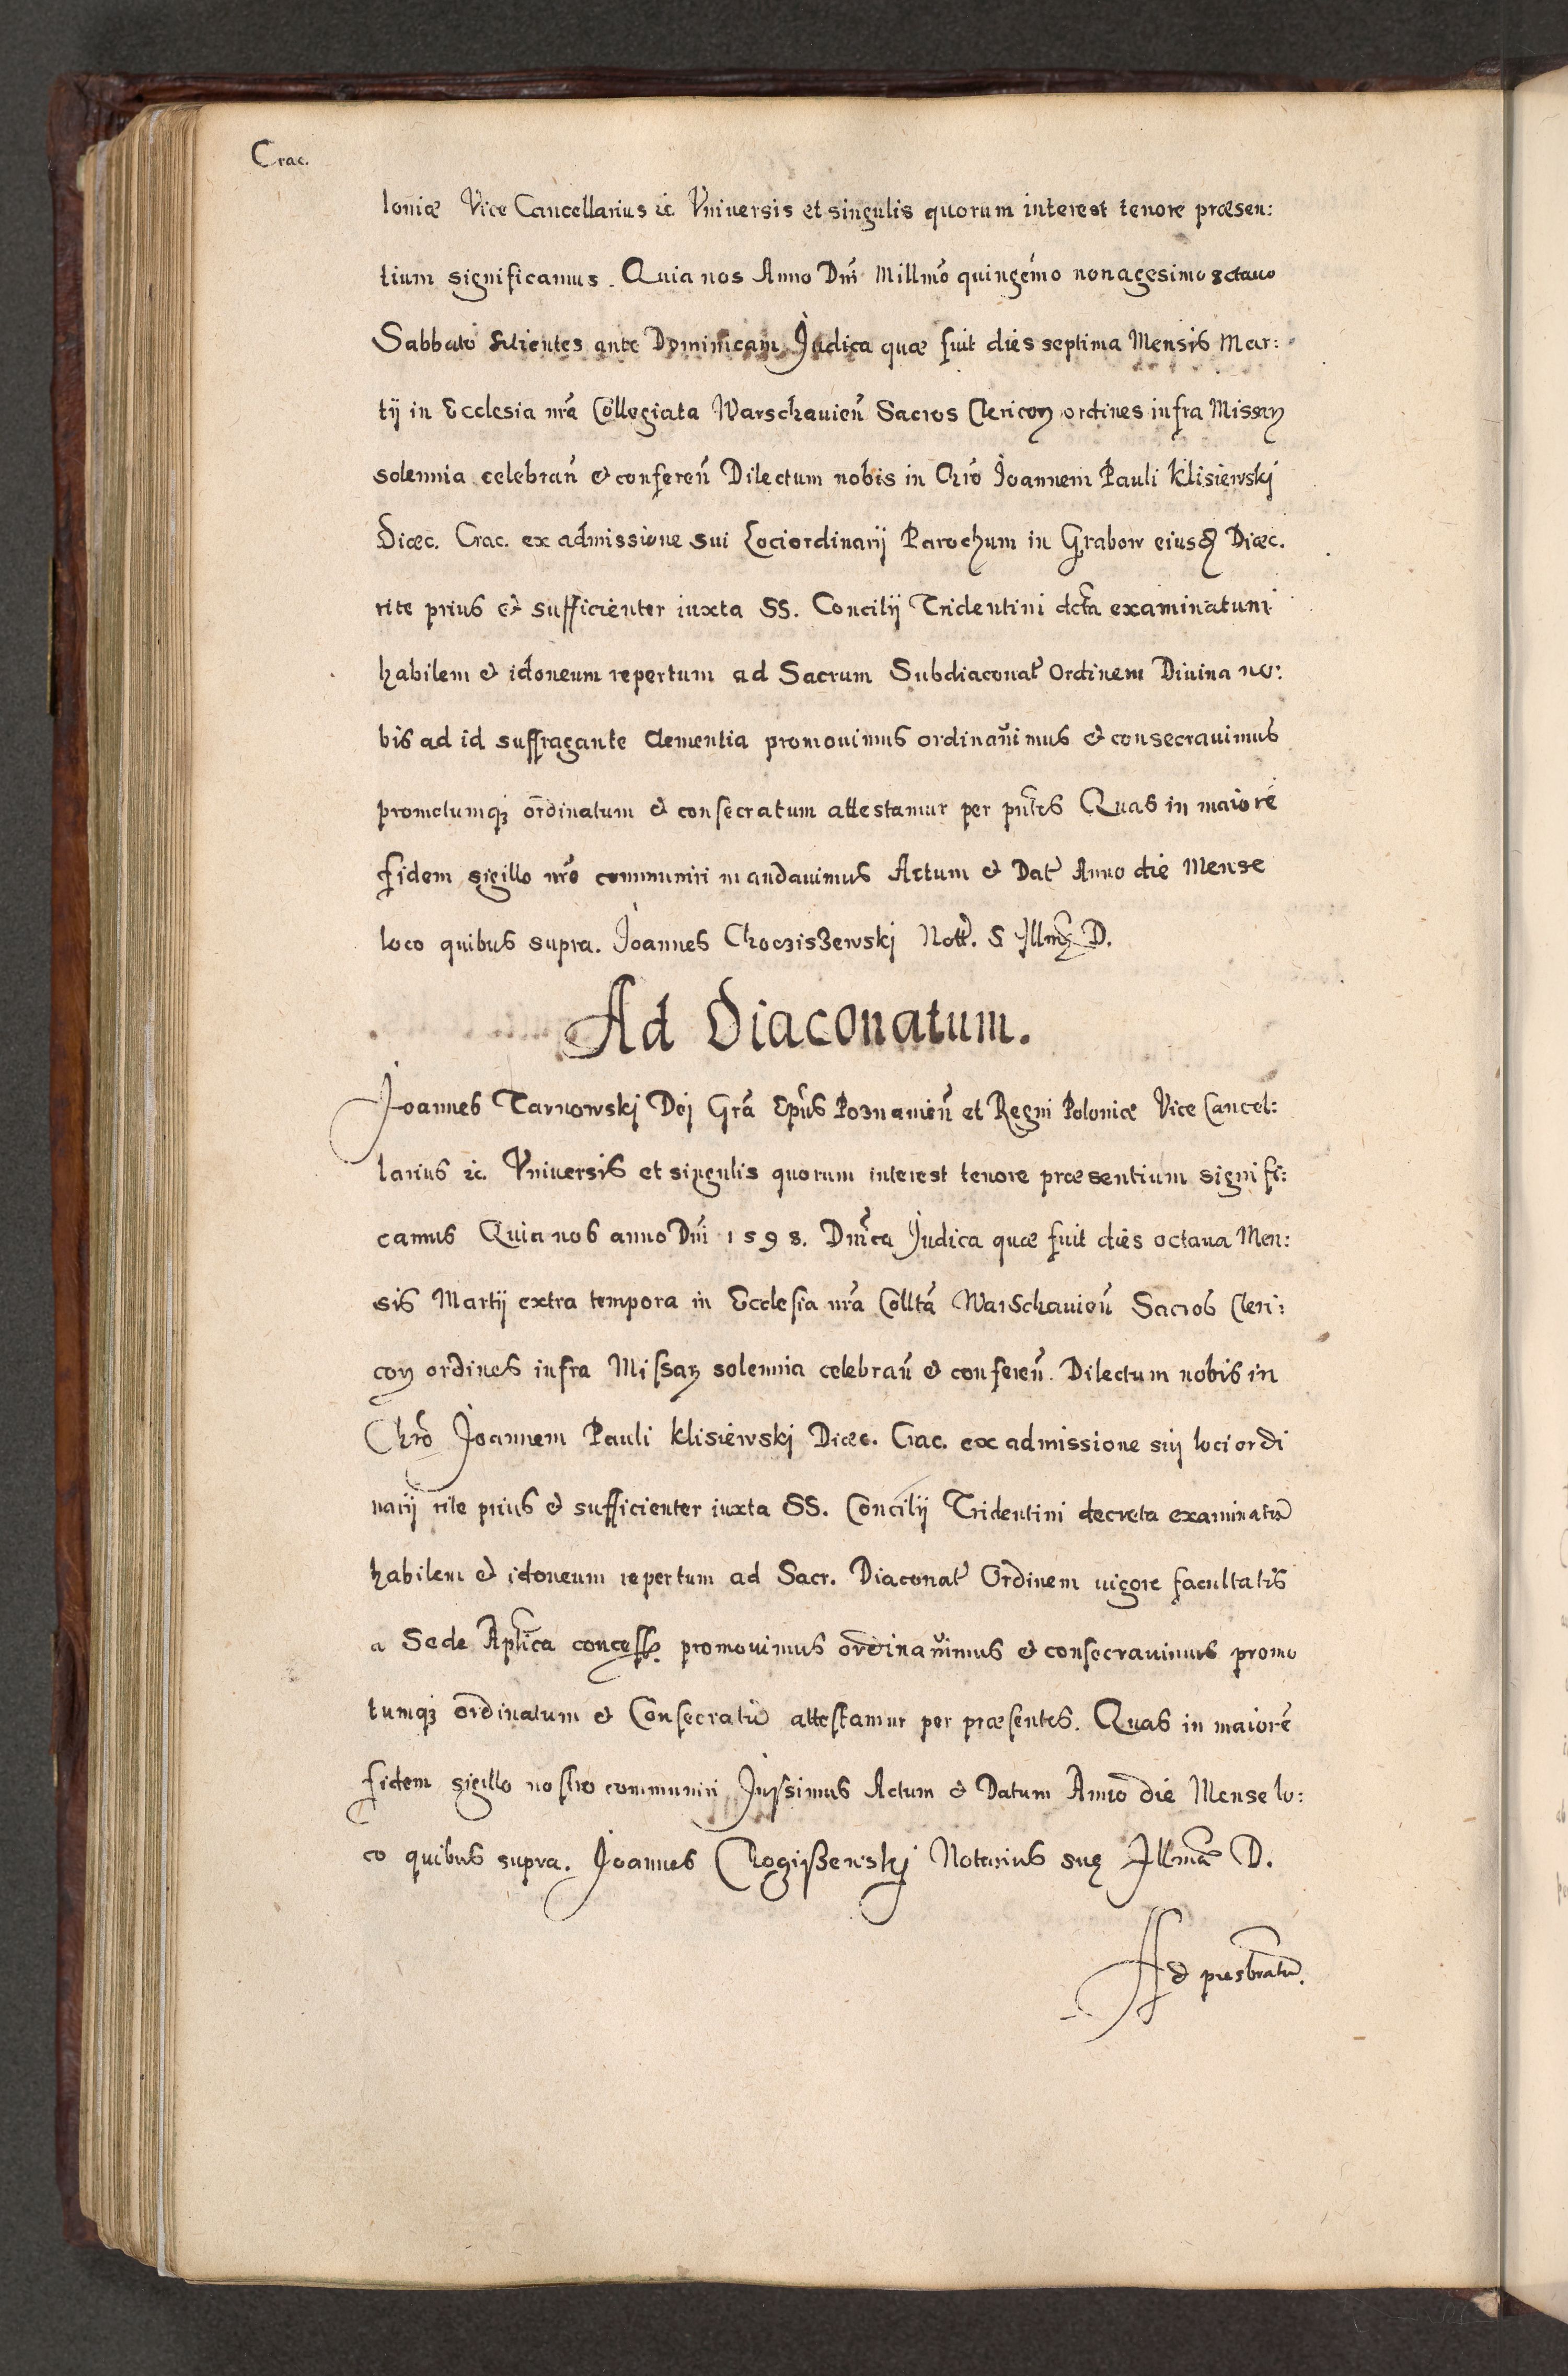 Crac.
loniæ Vice Cancellarius ꝛc Vniuersis et singulis quorum interest tenore præsen:
tium significamus. Quia nos Anno Dnĩ Millmõ quingẽmo nonagesimo octauo
Sabbato Sitientes ante Dominicam Judica quæ fuit dies septima Mensis Mar:
tij in Ecclesia nrã Collegiata Warschauieñ Sacros Clericoꝝ ordines infra Missaꝝ
solemnia celebrañ & confereñ Dilectum nobis in Chrõ Joannem Pauli Klisiewskj
Diœc. Crac. ex admissione sui Lociordinarij Parochum in Grabow eiusđ Diœc.
rite prius & sufficienter iuxta SS. Concilij Tridentini dctã examinatum
habilem & idoneum repertum ad Sacrum Subdiaconat9 Ordinem Diuina no:
bis ad id suffragante clementia promouimus ordinauimus & consecrauimus
promotumqȝ ordinatum & consecratum attestamur per pñtes Quas in maiorẽ
fidem sigillo nrõ communiri mandauimus Actum & Dat9 Anno die Mense
loco quibus supra. Joannes Choczisʒewskj Nott9. S Jllmę D.
Ad Diaconatum.
Joannes Tarnowskj Dej Grã Epũs Poznanieñ et Regni Poloniæ Vice Cancel:
larius ꝛc. Vniuersis et singulis quorum interest tenore præsentium signifi:
camus Quia nos anno Dnĩ 1598. Dnĩca Judica quæ fuit dies octaua Men:
sis Martij extra tempora in Ecclesia nrã Colltã Warschauieñ Sacros Cleri:
coꝝ ordines infra Missaꝝ solemnia celebrañ & confereñ. Dilectum nobis in
Chrõ Joannem Pauli Klisiewskj Diœc. Crac. ex admissione sui lociordi
narij rite prius & sufficienter iuxta SS. Concilij Tridentini decreta examinatũ
habilem & idoneum repertum ad Sacr. Diaconat9 Ordinem uigore facultatis
a Sede Aplica concess. promouimus ordinauimus & consecrauimus promo
tumqȝ ordinatum & Consecratũ attestamur per præsentes. Quas in maiorẽ
fidem sigillo nostro communiri Jussimus Actum & Datum Anno die Mense lo:
co quibus supra. Joannes Chogißewskj Notarius suę Jllmã D.
Ad presbratũ.